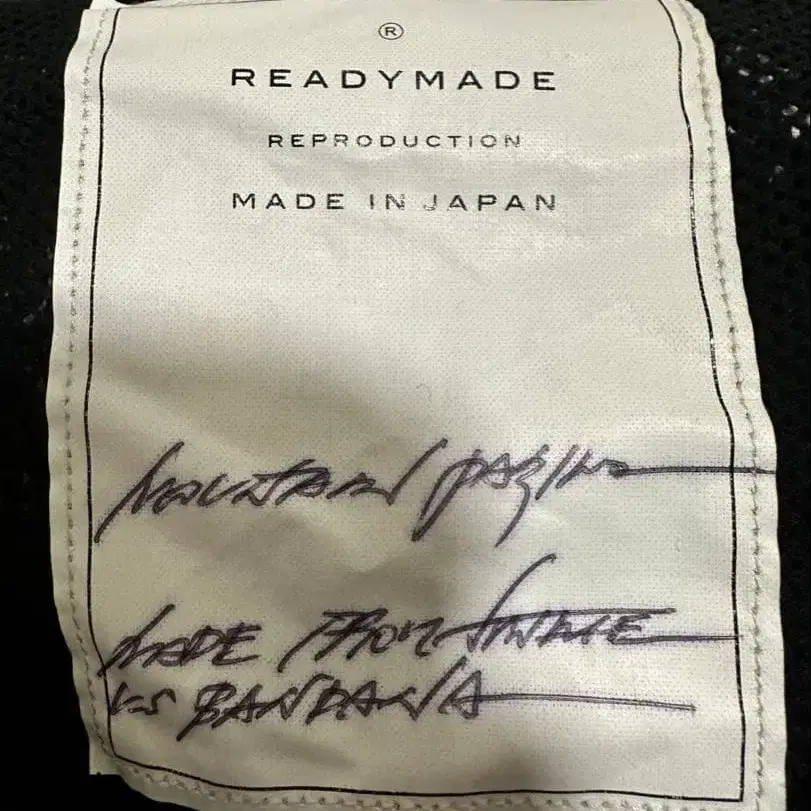 ®
READYMADE
REPRODUCTION
MADE IN JAPAN
MOUNTAIN PARKA
MADE FROM VINTAGE
US BANDANA